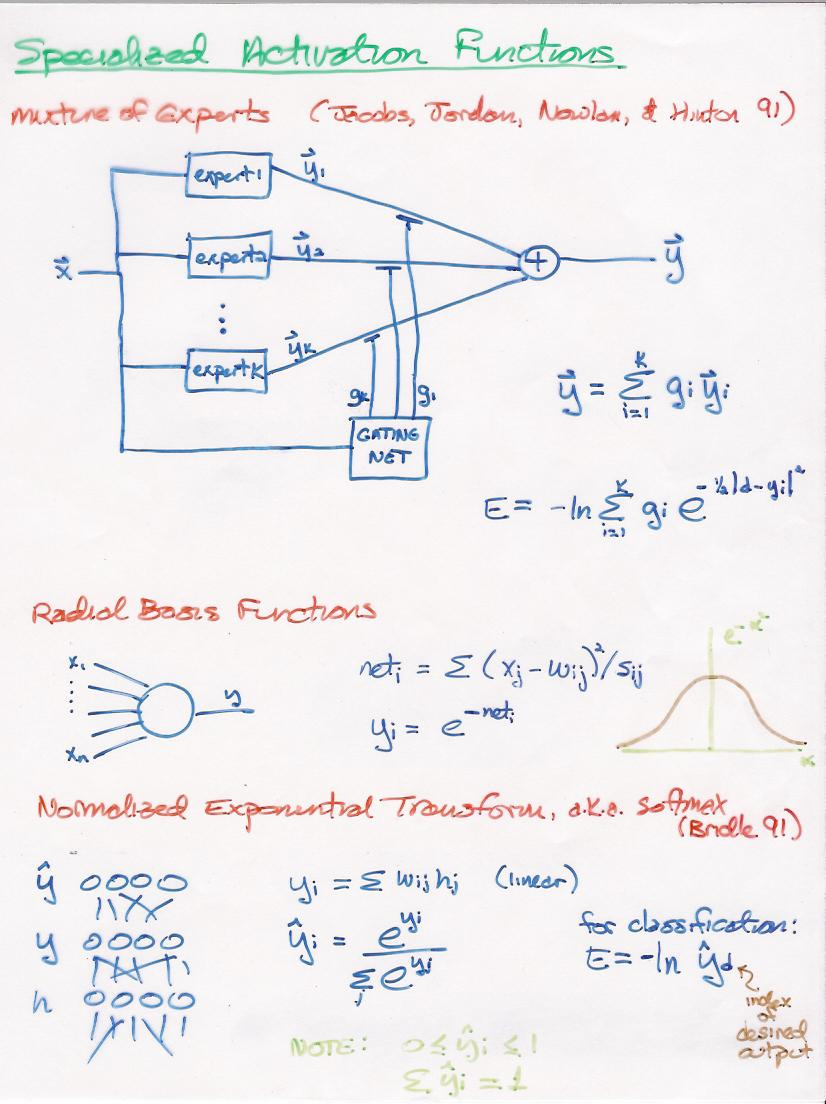 Specialized Activation Functions
Mixture of Experts (Jacobs, Jordan, Nowlan, & Hinton 91)
expert 1
y⃗₁
x⃗
expert 2
y⃗₂
+
y⃗
⋮
expert K
y⃗ₖ
gₖ
g₁
GATING
NET
y⃗ = Σᵢ₌₁ᴷ gᵢ y⃗ᵢ
E = -ln Σᵢ₌₁ᴷ gᵢ e^(-½|d-yᵢ|²)
Radial Basis Functions
e^(-x²)
x₁
⋮
xₙ
y
netᵢ = Σ (xⱼ - wᵢⱼ)²/sᵢⱼ
yᵢ = e^(-netᵢ)
x
Normalized Exponential Transform, a.k.a. softmax
(Bridle 91)
ŷ 0000
y 0000
h 0000
yᵢ = Σ wᵢⱼ hⱼ (linear)
ŷᵢ = e^(yᵢ) / Σⱼ e^(yⱼ)
for classification:
E = -ln ŷ_d
index
of
desired
output
NOTE: 0 ≤ ŷᵢ ≤ 1
Σ ŷᵢ = 1